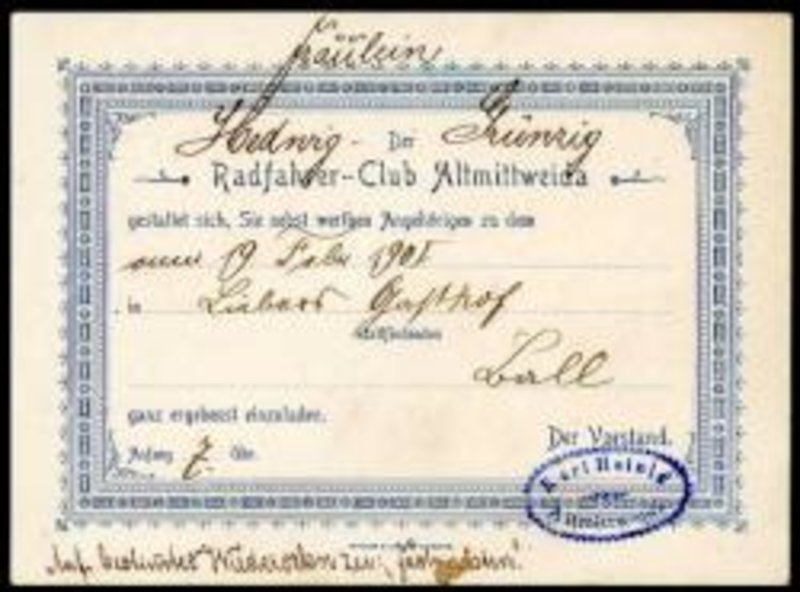 Fräulein
Hedwig Der Grünzig
Radfahrer-Club Altmittweida
gestattet sich, Sie nebst werthen Angehörigen zu dem
am 19 Febr 1901
in Liebers Gasthof
stattfindenden
Ball
ganz ergebenst einzuladen.
Anfang 7 Uhr.
Der Vorstand.
Karl Heinig
Auf Wiedersehen